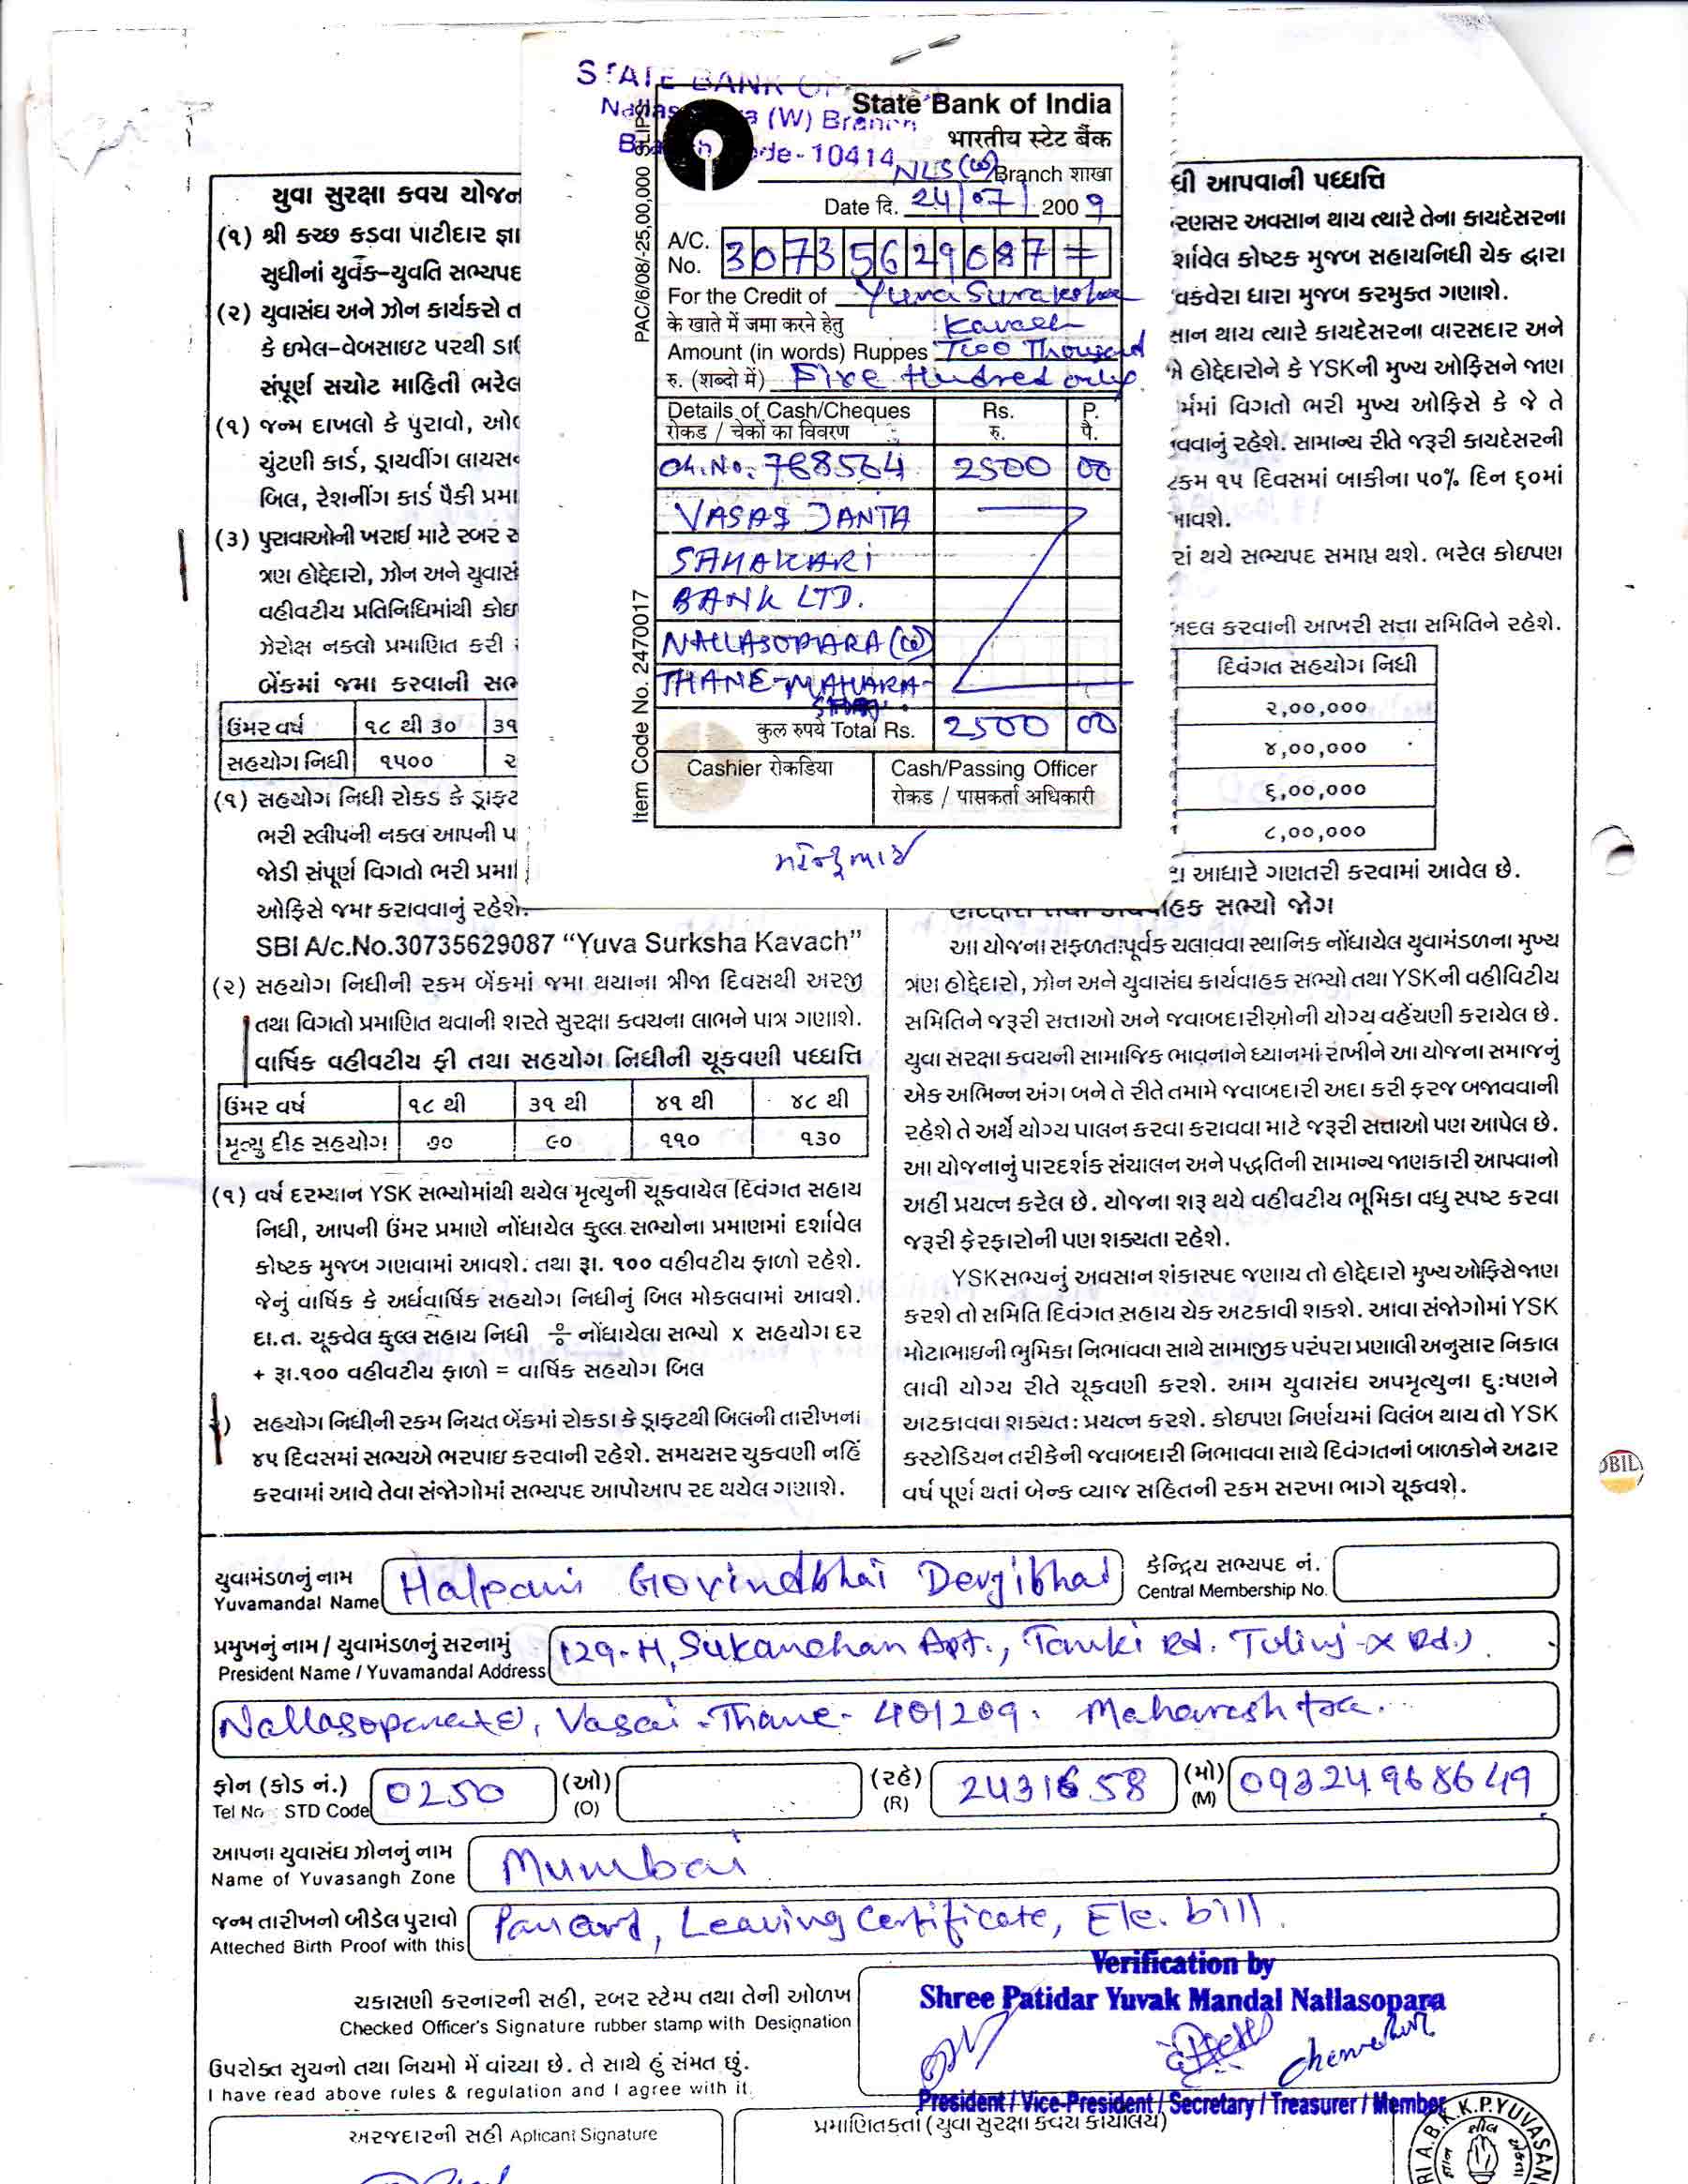 STATE BANK OF
(W) Branch
10414
State Bank of India
भारतीय स्टेट बैंक
NLS (W) Branch शाखा
Date दि. 24/07/2009
A/C. No. 30735629087=
For the Credit of Yuva Suraksha
के खाते में जमा करने हेतु Kavach
Amount (in words) Ruppes Two Thousand
रु. (शब्दो में) Five Hundred only.
Details of Cash/Cheques Rs. P.
रोकड / चेकों का विवरण रु. पै.
Ch.No. 768564 2500 00
VASAI JANTA
SAHAKARI
BANK LTD.
NALLASOPARA (W)
THANE-MAHARA-
कुल रुपये Total Rs. 2500 00
Cashier रोकडिया Cash/Passing Officer
रोकड / पासकर्ता अधिकारी
PAC/6/08/-25,00,000 SLIPS
Item Code No. 2470017
યુવા સુરક્ષા કવચ યોજન
(૧) શ્રી કચ્છ કડવા પાટીદાર જ્ઞા
સુધીનાં યુવક-યુવતિ સભ્યપદ
(૨) યુવાસંઘ અને ઝોન કાર્યકરો ત
કે ઇમેલ-વેબસાઇટ પરથી ડા
સંપૂર્ણ સચોટ માહિતી ભરેલ
(૧) જન્મ દાખલો કે પુરાવો, ઓ
ચુંટણી કાર્ડ, ડ્રાયવીંગ લાયસ
બિલ, રેશનીંગ કાર્ડ પૈકી પ્રમા
(૩) પુરાવાઓની ખરાઇ માટે રબર સ
ત્રણ હોદ્દેદારો, ઝોન અને યુવાસં
વહીવટીય પ્રતિનિધિમાંથી કોઇ
ઝેરોક્ષ નકલો પ્રમાણિત કરી
બેંકમાં જમા કરવાની સભ
ઉંમર વર્ષ ૧૮ થી ૩૦ ૩૧
સહયોગ નિધી ૧૫૦૦ ૨
(૧) સહયોગ નિધી રોકડ કે ડ્રાફટ
ભરી સ્લીપની નકલ આપની પ
જોડી સંપૂર્ણ વિગતો ભરી પ્રમા
ઓફિસે જમા કરાવવાનું રહેશે.
SBI A/c.No.30735629087 “Yuva Surksha Kavach”
(૨) સહયોગ નિધીની રકમ બેંકમાં જમા થયાના ત્રીજા દિવસથી અરજી
તથા વિગતો પ્રમાણિત થવાની શરતે સુરક્ષા કવચના લાભને પાત્ર ગણાશે.
વાર્ષિક વહીવટીય ફી તથા સહયોગ નિધીની ચૂકવણી પધ્ધત્તિ
ઉંમર વર્ષ ૧૮ થી ૩૧ થી ૪૧ થી ૪૮ થી
મૃત્યુ દીઠ સહયોગ ૭૦ ૯૦ ૧૧૦ ૧૩૦
(૧) વર્ષ દરમ્યાન YSK સભ્યોમાંથી થયેલ મૃત્યુની ચૂકવાયેલ દિવંગત સહાય
નિધી, આપની ઉંમર પ્રમાણે નોંધાયેલ કુલ્લ સભ્યોના પ્રમાણમાં દર્શાવેલ
કોષ્ટક મુજબ ગણવામાં આવશે. તથા રૂા. ૧૦૦ વહીવટીય ફાળો રહેશે.
જેનું વાર્ષિક કે અર્ધવાર્ષિક સહયોગ નિધીનું બિલ મોકલવામાં આવશે.
દા.ત. ચૂકવેલ કુલ્લ સહાય નિધી ÷ નોંધાયેલા સભ્યો x સહયોગ દર
+ રૂા.૧૦૦ વહીવટીય ફાળો = વાર્ષિક સહયોગ બિલ
સહયોગ નિધીની રકમ નિયત બેંકમાં રોકડા કે ડ્રાફટથી બિલની તારીખના
૪૫ દિવસમાં સભ્યએ ભરપાઇ કરવાની રહેશે. સમયસર ચુકવણી નહિં
કરવામાં આવે તેવા સંજોગોમાં સભ્યપદ આપોઆપ રદ થયેલ ગણાશે.
ધી આપવાની પધ્ધત્તિ
રણસર અવસાન થાય ત્યારે તેના કાયદેસરના
ર્શાવેલ કોષ્ટક મુજબ સહાયનિધી ચેક દ્વારા
વકવેરા ધારા મુજબ કરમુક્ત ગણાશે.
સાન થાય ત્યારે કાયદેસરના વારસદાર અને
હોદ્દેદારોને કે YSKની મુખ્ય ઓફિસને જાણ
ર્મમાં વિગતો ભરી મુખ્ય ઓફિસે કે જે તે
વવાનું રહેશે. સામાન્ય રીતે જરૂરી કાયદેસરની
રકમ ૧૫ દિવસમાં બાકીના ૫૦% દિન ૬૦માં
આવશે.
રાં થયે સભ્યપદ સમાપ્ત થશે. ભરેલ કોઇપણ
બદલ કરવાની આખરી સત્તા સમિતિને રહેશે.
દિવંગત સહયોગ નિધી
૨,૦૦,૦૦૦
૪,૦૦,૦૦૦
૬,૦૦,૦૦૦
૮,૦૦,૦૦૦
આધારે ગણતરી કરવામાં આવેલ છે.
સભ્યો જોગ
આ યોજના સફળતાપૂર્વક ચલાવવા સ્થાનિક નોંધાયેલ યુવામંડળના મુખ્ય
ત્રણ હોદ્દેદારો, ઝોન અને યુવાસંઘ કાર્યવાહક સભ્યો તથા YSKની વહીવિટીય
સમિતિને જરૂરી સત્તાઓ અને જવાબદારીઓની યોગ્ય વહેંચણી કરાયેલ છે.
યુવા સરક્ષા કવચની સામાજિક ભાવનાને ધ્યાનમાં રાખીને આ યોજના સમાજનું
એક અભિન્ન અંગ બને તે રીતે તમામે જવાબદારી અદા કરી ફરજ બજાવવાની
રહેશે તે અર્થે યોગ્ય પાલન કરવા કરાવવા માટે જરૂરી સત્તાઓ પણ આપેલ છે.
આ યોજનાનું પારદર્શક સંચાલન અને પદ્ધતિની સામાન્ય જાણકારી આપવાનો
અહીં પ્રયત્ન કરેલ છે. યોજના શરૂ થયે વહીવટીય ભૂમિકા વધુ સ્પષ્ટ કરવા
જરૂરી ફેરફારોની પણ શક્યતા રહેશે.
YSK સભ્યનું અવસાન શંકાસ્પદ જણાય તો હોદ્દેદારો મુખ્ય ઓફિસે જાણ
કરશે તો સમિતિ દિવંગત સહાય ચેક અટકાવી શકશે. આવા સંજોગોમાં YSK
મોટાભાઇની ભુમિકા નિભાવવા સાથે સામાજીક પરંપરા પ્રણાલી અનુસાર નિકાલ
લાવી યોગ્ય રીતે ચૂકવણી કરશે. આમ યુવાસંઘ અપમૃત્યુના દુઃષણને
અટકાવવા શક્યતઃ પ્રયત્ન કરશે. કોઇપણ નિર્ણયમાં વિલંબ થાય તો YSK
કસ્ટોડિયન તરીકેની જવાબદારી નિભાવવા સાથે દિવંગતનાં બાળકોને અઢાર
વર્ષ પૂર્ણ થતાં બેન્ક વ્યાજ સહિતની રકમ સરખા ભાગે ચૂકવશે.
યુવામંડળનું નામ Halpani Govindbhai Devjibhai કેન્દ્રિય સભ્યપદ નં.
Yuvamandal Name Central Membership No.
પ્રમુખનું નામ / યુવામંડળનું સરનામું 129-H, Sukanchan Apt., Tanki Rd. Tulinj-X Rd.)
President Name / Yuvamandal Address
Nallasopara(E), Vasai - Thane - 401209. Maharashtra.
ફોન (કોડ નં.) 0250 (ઓ) (રહે) 2431658 (મો) 09324968649
Tel No : STD Code (O) (R) (M)
આપના યુવાસંઘ ઝોનનું નામ Mumbai
Name of Yuvasangh Zone
જન્મ તારીખનો બીડેલ પુરાવો Pan Card, Leaving Certificate, Ele. bill.
Atteched Birth Proof with this
Verification by
Shree Patidar Yuvak Mandal Nallasopara
ચકાસણી કરનારની સહી, રબર સ્ટેમ્પ તથા તેની ઓળખ
Checked Officer's Signature rubber stamp with Designation
ઉપરોક્ત સુચનો તથા નિયમો મેં વાંચ્યા છે. તે સાથે હું સંમત છું.
I have read above rules & regulation and I agree with it.
President / Vice-President / Secretary / Treasurer / Member
અરજદારની સહી Aplicant Signature
પ્રમાણિતકર્તા (યુવા સુરક્ષા કવચ કાર્યાલય)
K.K.P.YUVASAN